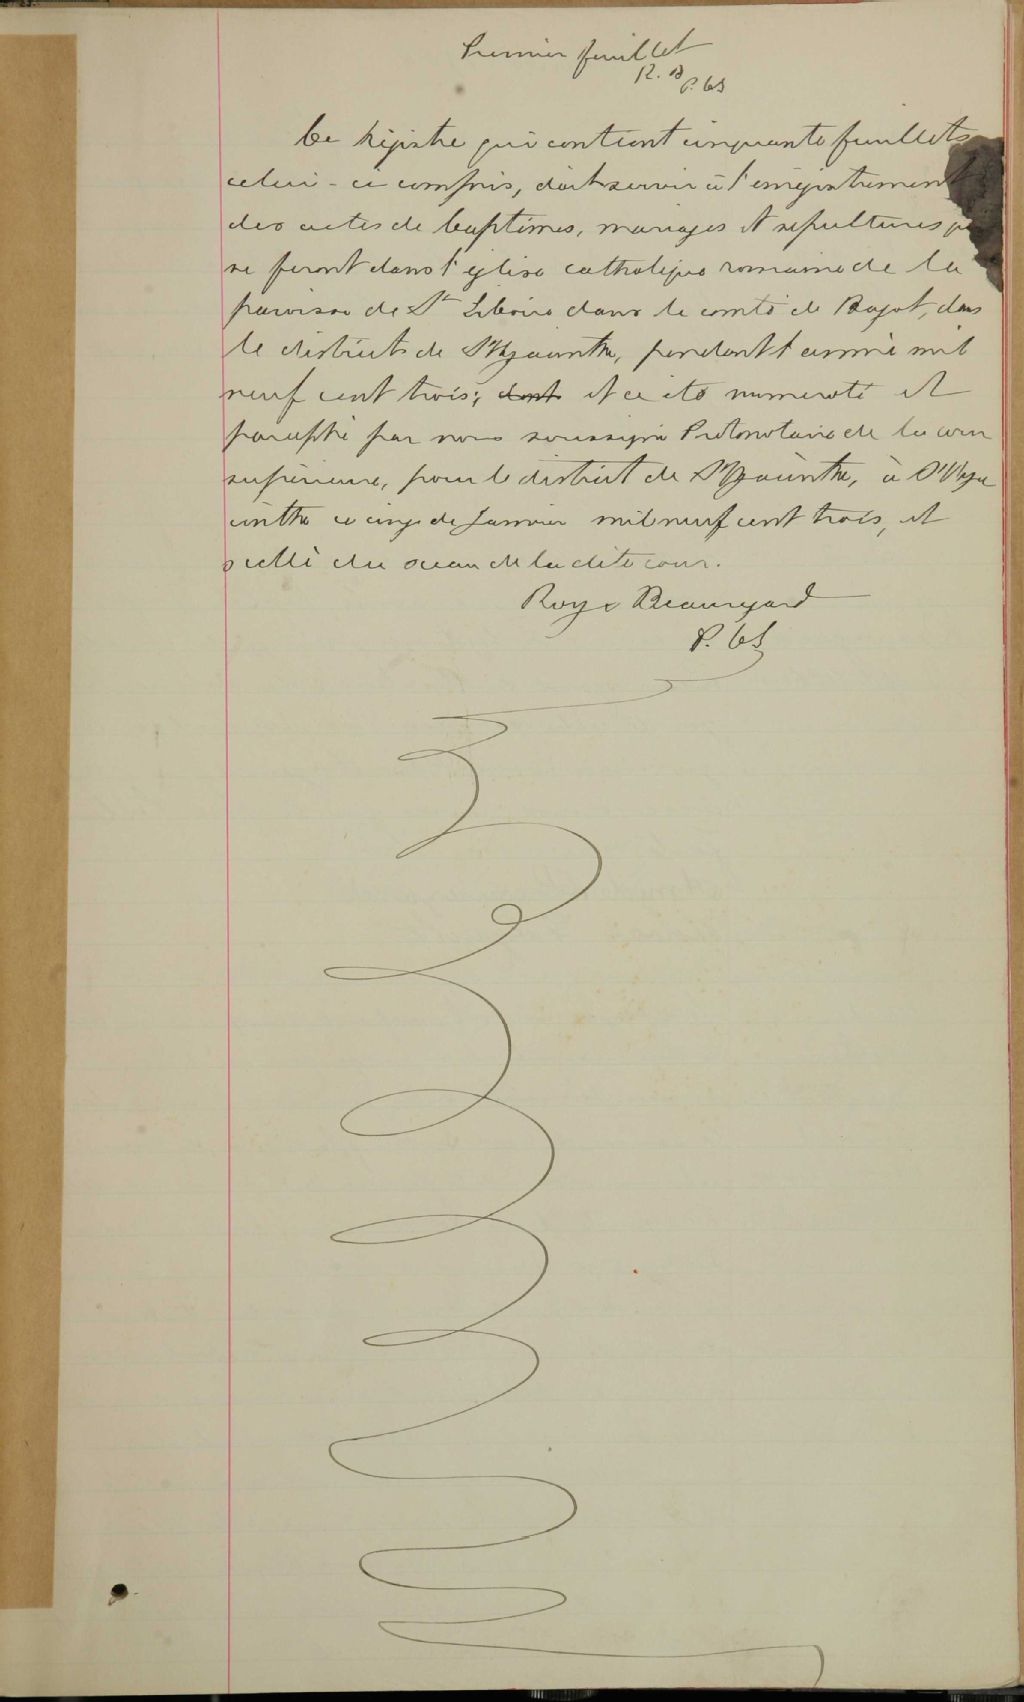 Premier feuillet
R. B
P. CS
Ce Régistre qui contient cinquante feuillets
celui-ci compris, doit servir à l'enregistrement
des actes de baptêmes, mariages et sépultures
se feront dans l'église catholique romaine de la
paroisse de St Liboire dans le comté de Bagot, dans
le district de St Hyacinthe, pendant l'année mil
neuf cent trois; dont et a été numeroté et
paraphé par nous soussigné Protonotaire de la cour
supérieure, pour le district de St Hyacinthe, à St Hya
cinthe ce cinq de Janvier mil neuf cent trois, et
scellé du sceau de la dite cour.
Roy & Beauregard
P. CS